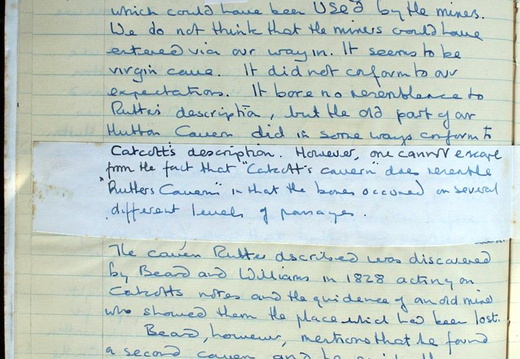 which could have been USED by the mines.
We do not think that the miners could have
entered via our way in. It seems to be
virgin cave. It did not conform to our
expectations. It bore no resemblence to
Rutter's description, but the old part of our
Hutton Cavern did in some ways conform to
Catcott's description. However, one cannot escape
from the fact that "Catcott's cavern does resemble
"Rutters Cavern" in that the bones occurred on several
different levels of passages.
The cavern Rutter dscribed was discovered
by Beard and Williams in 1828 acting on
Catcotts notes and the guidence of an old miner
who showed them the place which had been lost.
Beard, however, mentions that he found
a second cavern and he